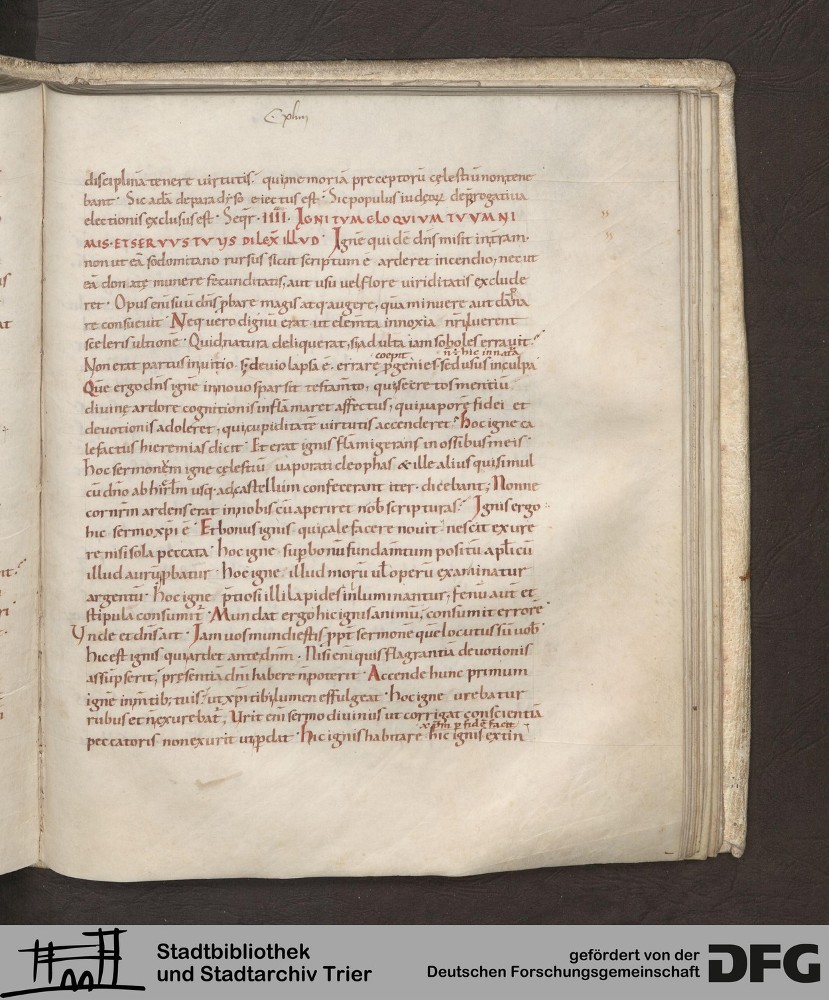 C·xliiii
disciplinā tenere uirtutis? qui memoriā preceptorū cęlestiū non tene
bant· Sic adā de paradyso eiectus est· Sic populus iudęorę de p̄rogatiua
electionis exclusus est· Seqr̄· IIII· IGNITVM ELOQVIVM TVVM NI
MIS· ET SERVVS TVVS DILEX̄ ILLVD· Ignē quidē dn̄s misit in terram·
non ut eā sodomitano rursus sicut scriptum ē arderet incendio, nec ut
eā donatę munere fecunditatis, aut usu uel flore uiriditatis exclude
ret· Opus enī suū dn̄s p̱bare magis atq; augere, quā minuere aut dāna
re consueuit· Neq; uero dignū erat ut elem̄ta innoxia nr̄i luerent
sceleris ultionē· Quid natura deliquerat, si adulta iam soboles errauit?
coepit n̄ hic innata
Non erat partus in uitio· sed deuio lapsa ē· errare p̱genies· sed usus in culpa
Que ergo dn̄s ignē in nouo sparsit testam̄to, qui secretos mentiū
diuinę ardore cognitionis inflāmaret affectus, qui uaporę fidei et
deuotionis adoleret, qui cupiditatē uirtutis accenderet· Hoc igne ca
lefactus hieremias dicit· Et erat ignis flāmigerans in ossibus meis·
hoc sermonem igne cęlestiū uaporati cleophas & ille alius qui simul
cū dn̄o ab hirl̄m usq; ad castellum confecerant iter· dicebant; Nonne
cor nr̄m ardens erat in nobis cū aperiret nob̄ scripturas? Ignis ergo
hic sermo xp̄i ē· Et bonus ignis qui calefacere nouit· nescit exure
re nisi sola peccata· hoc igne sup̱ bonū fundam̄tum positū ap̄licū
illud aurū p̱batur· hoc igne illud morū ul̄ operū examinatur
argentū· hoc igne p̄tiosi illi lapides inluminantur; fenū aut̄ et
stipula consumit̄· Mundat ergo hic ignis animū, consumit errorē·
Vnde et dn̄s ait· Iam uos mundi estis ppt̄ sermonē quē locutus sū uob̄·
hic est ignis qui ardet ante dn̄m· Nisi enī quis flagrantiā deuotionis
assūpserit, pręsentiā dn̄i habere n̄ poterit· Accende hunc primum
ignē in m̄tib; tuis? ut xp̄i tibi lumen effulgeat· hoc igne urebatur
rubus et n̄ exurebat̄, Urit enī sermo diuinus ut corrigat conscientiā
xp̄m p̱ fidē facit
peccatoris non exurit ut p̱dat· hic ignis habitare· hic ignis extin
Stadtbibliothek
und Stadtarchiv Trier
gefördert von der
Deutschen Forschungsgemeinschaft
DFG